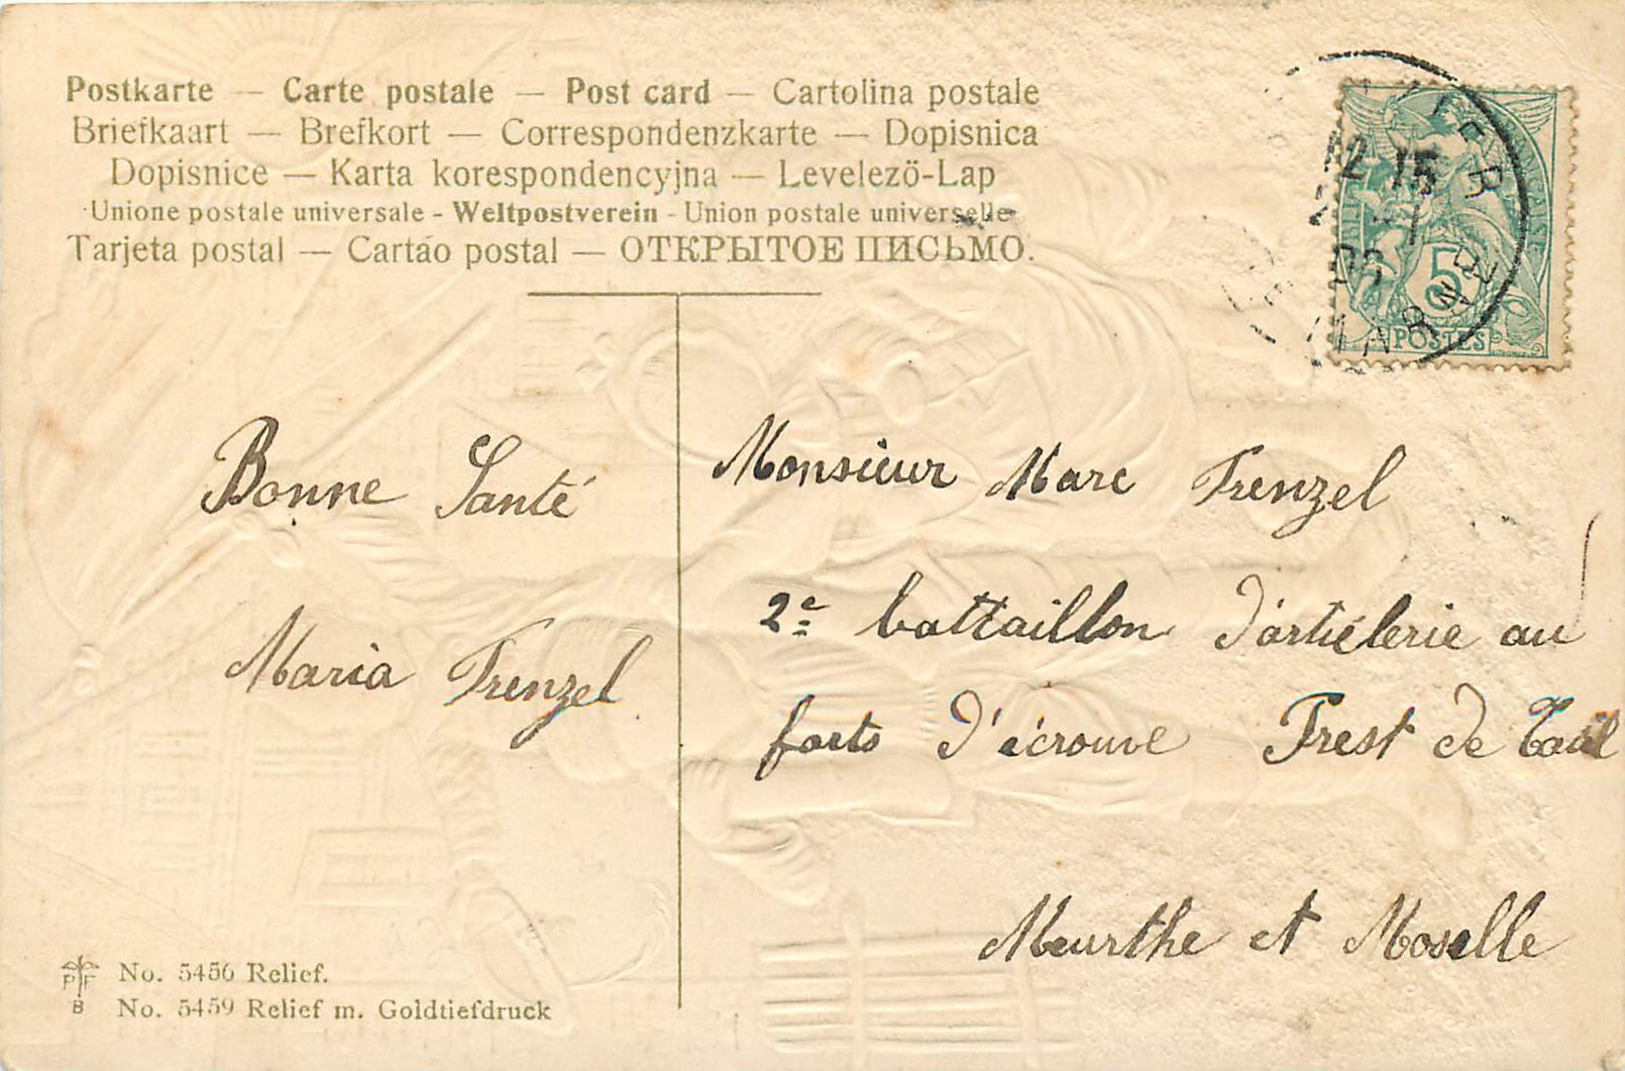 Postkarte — Carte postale — Post card — Cartolina postale
Briefkaart — Brefkort — Correspondenzkarte — Dopisnica
Dopisnice — Karta korespondencyjna — Levelezö-Lap
Unione postale universale - Weltpostverein - Union postale universelle
Tarjeta postal — Cartão postal — ОТКРЫТОЕ ПИСЬМО.
12 15
5
POSTES
MARNE
Bonne Santé
Maria Frenzel
Monsieur Marc Frenzel
2e battaillon d'artiélerie au
forts d'écrouve Prest de Toul
Meurthe et Moselle
PF
B
No. 5456 Relief.
No. 5459 Relief m. Goldtiefdruck